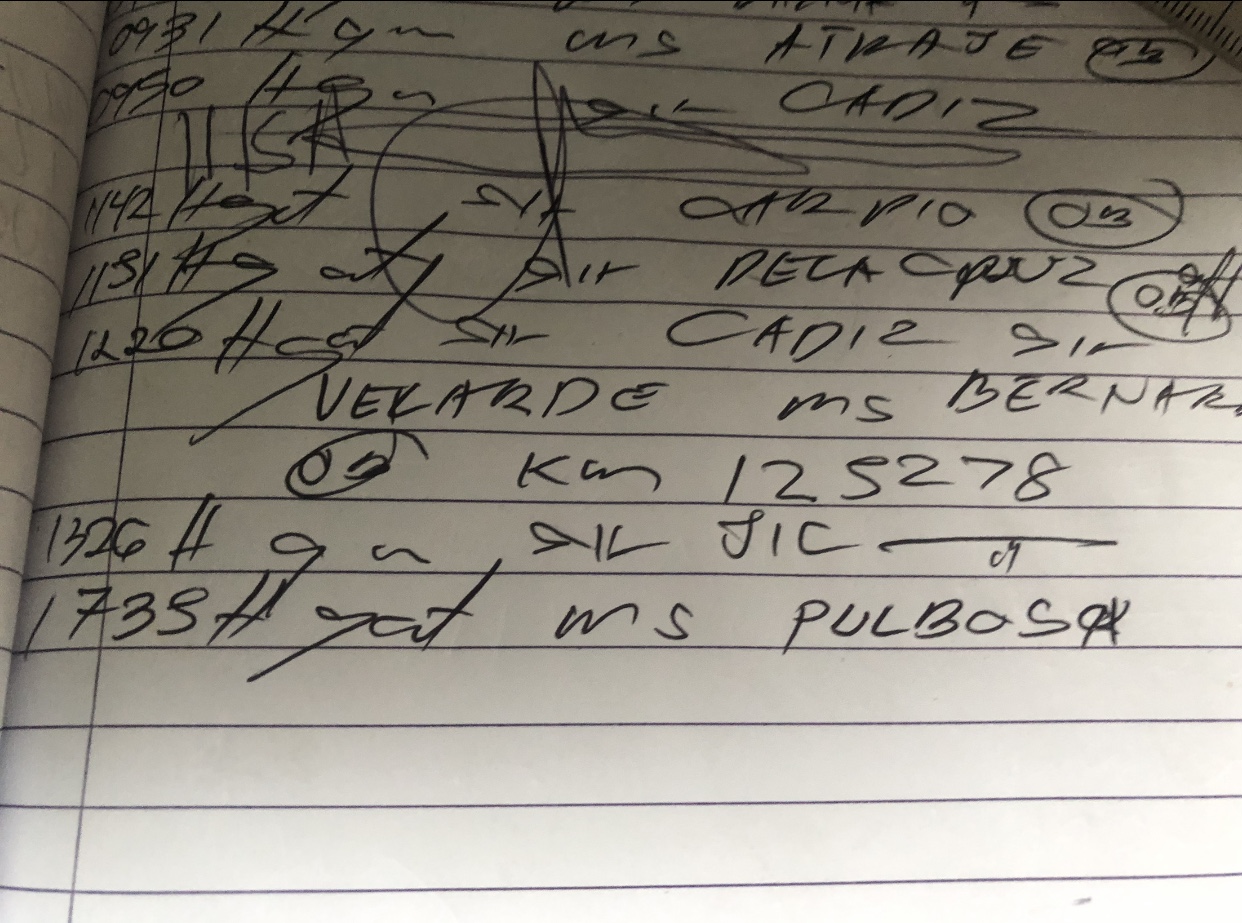 0931 H gn ms ATRAJE 03
0950 H gn sir CADIZ
1142 H gat sir CARPIO 03
1151 H gat sir DELA CRUZ 03
1220 H gat sir CADIZ sir
VELARDE ms BERNAR
03 Km 125278
1326 H gn sir JIC
1735 H gat ms PULBOSA